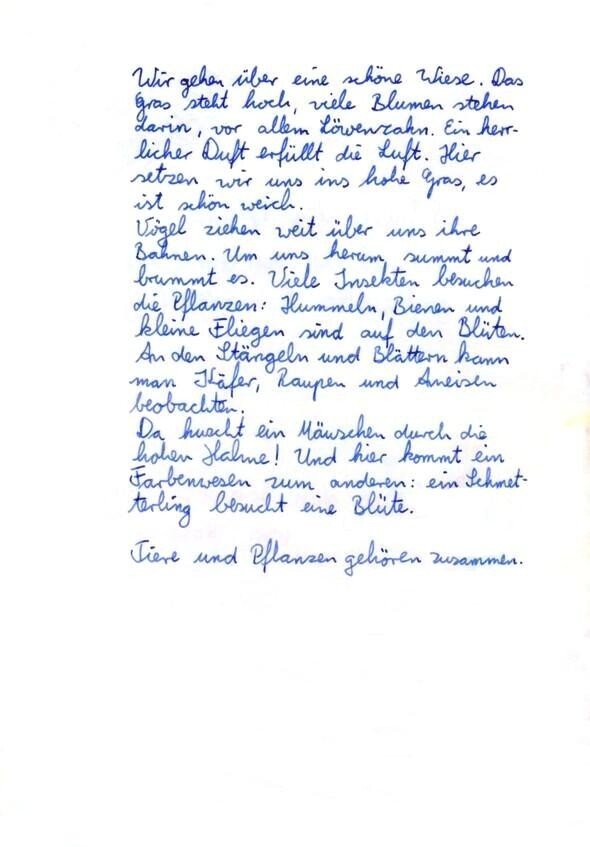 Wir gehen über eine schöne Wiese. Das
Gras steht hoch, viele Blumen stehen
darin, vor allem Löwenzahn. Ein herr-
licher Duft erfüllt die Luft. Hier
setzen wir uns ins hohe Gras, es
ist schön weich.
Vögel ziehen weit über uns ihre
Bahnen. Um uns herum summt und
brummt es. Viele Insekten besuchen
die Pflanzen: Hummeln, Bienen und
kleine Fliegen sind auf den Blüten.
An den Stängeln und Blättern kann
man Käfer, Raupen und Ameisen
beobachten.
Da huscht ein Mäuschen durch die
hohen Halme! Und hier kommt ein
Farbenwesen zum anderen: ein Schmet-
terling besucht eine Blüte.

Tiere und Pflanzen gehören zusammen.